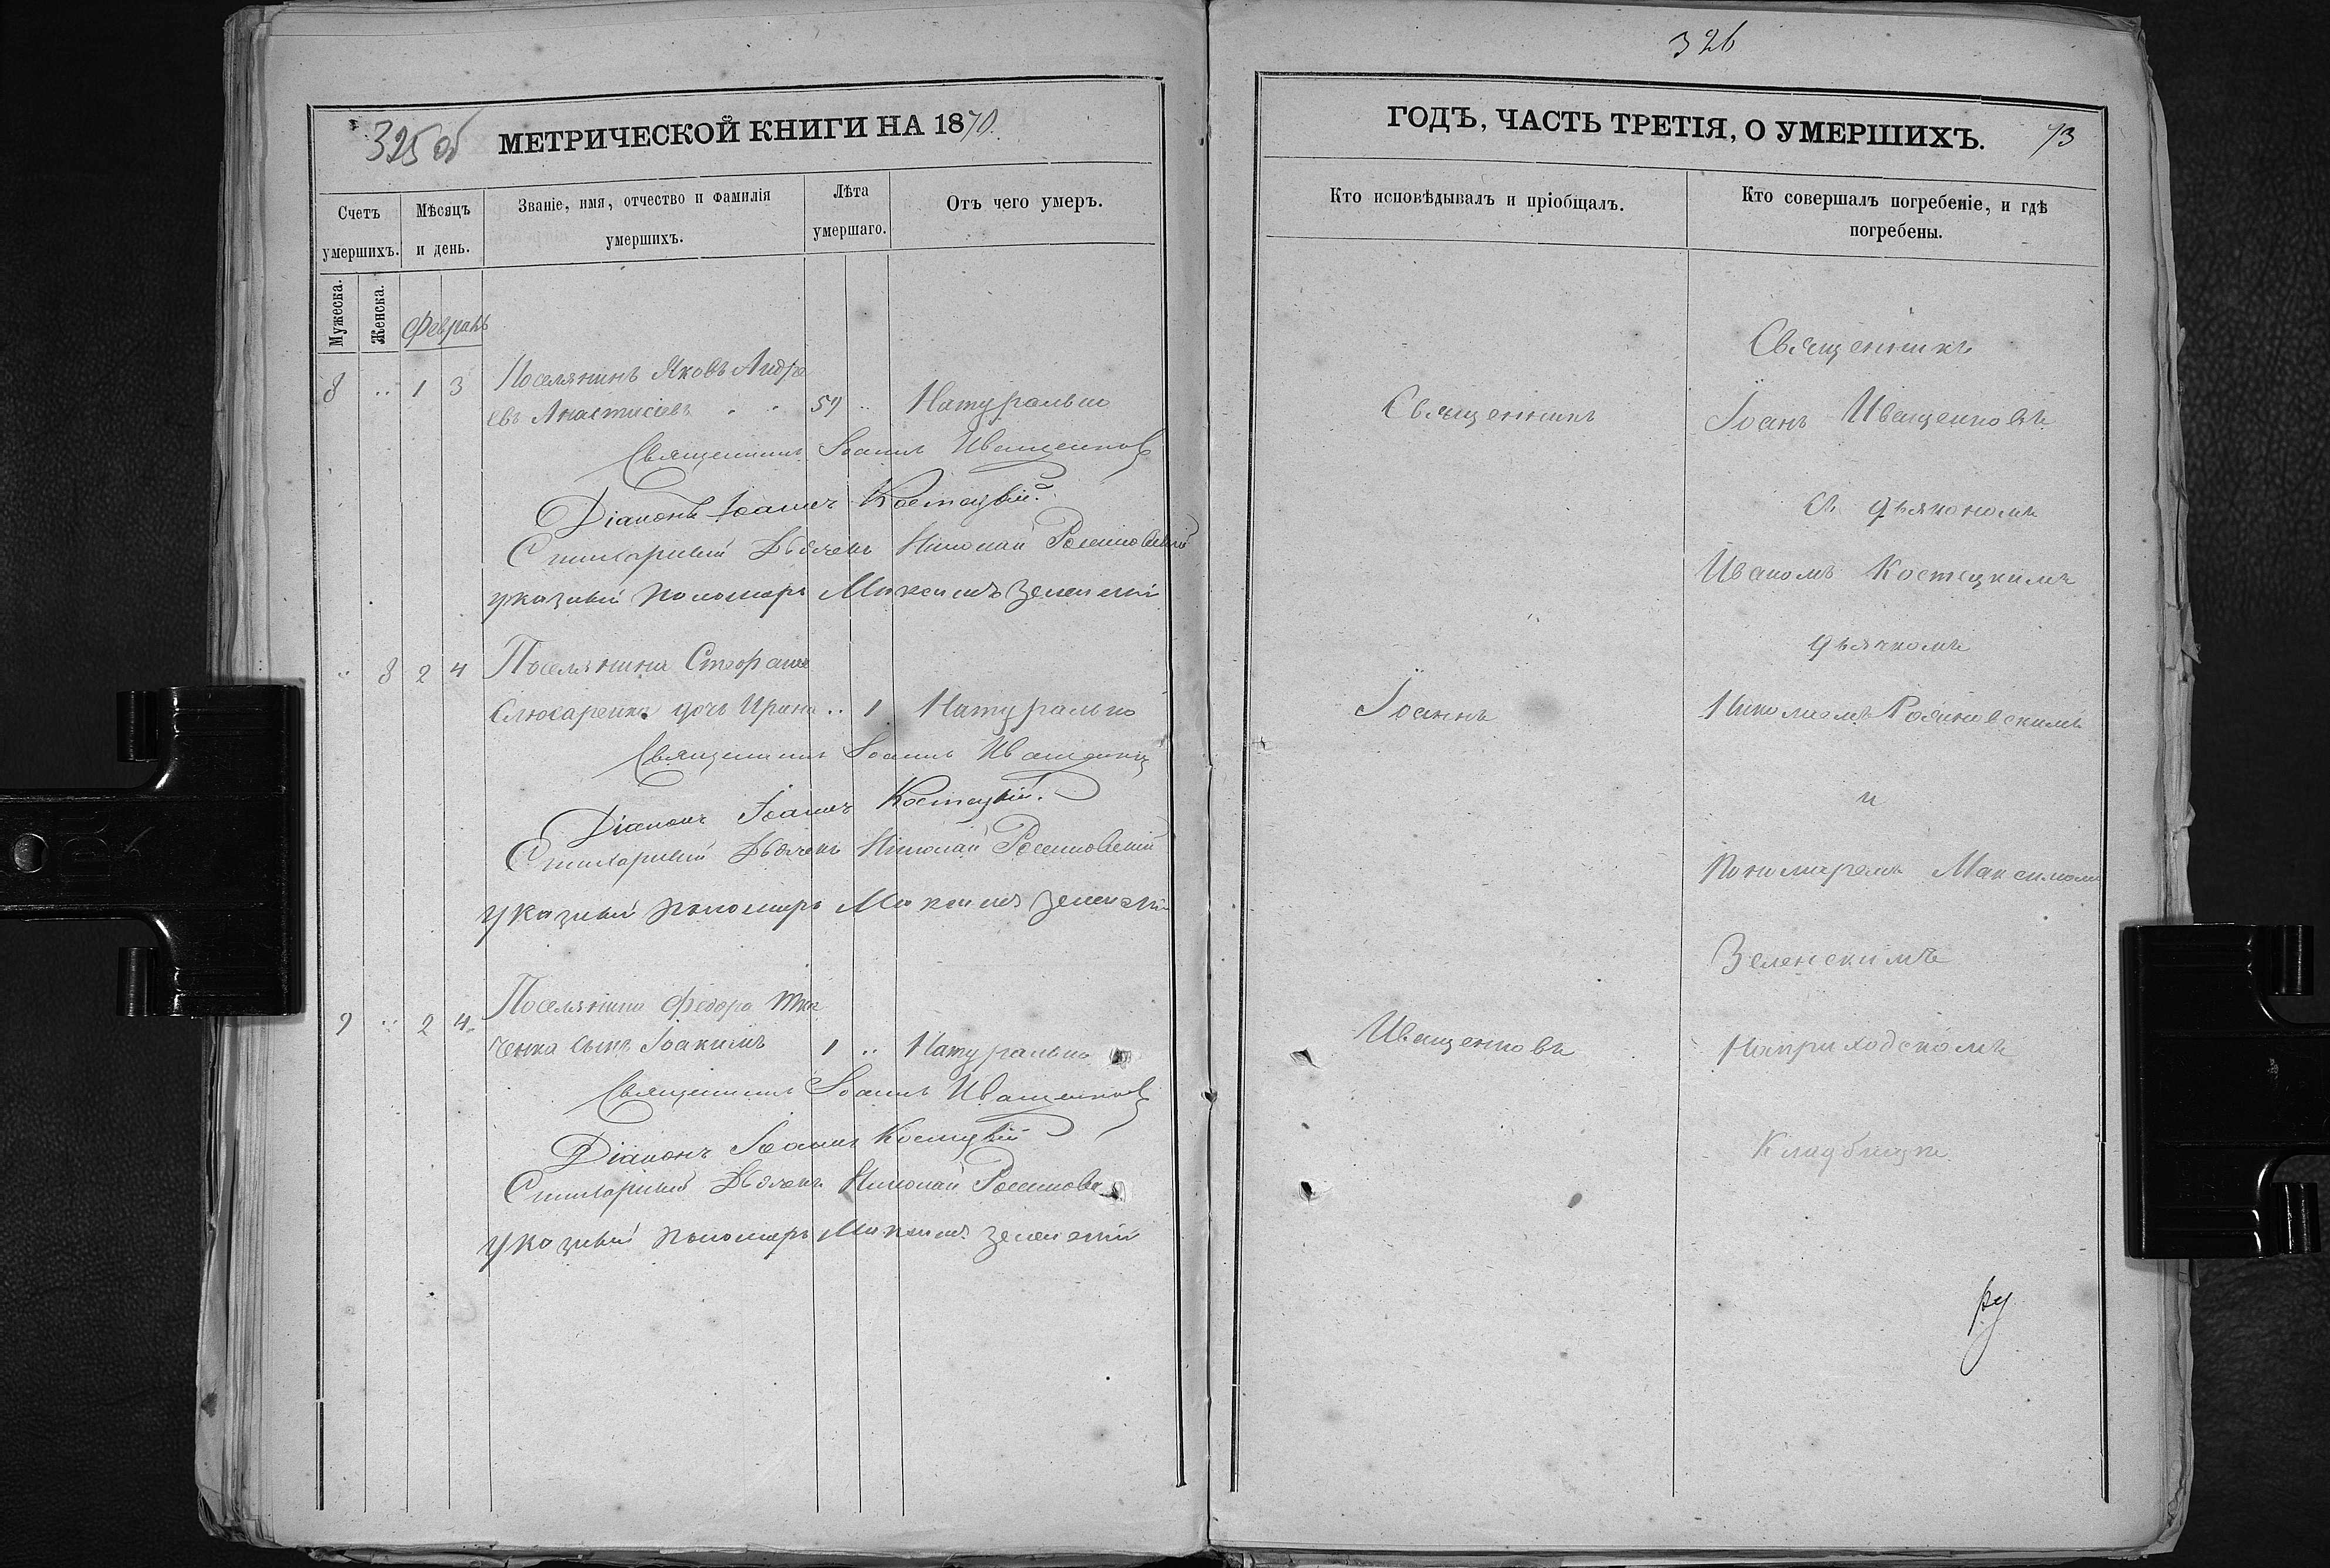 325 об МЕТРИЧЕСКОЙ КНИГИ НА 1870.
Счетъ умершихъ.
Мѣсяцъ и день.
Званіе, имя, отчество и фамилія умершихъ.
Лѣта умершаго.
Отъ чего умеръ.
Мужеска.
Женска.
Февраль
8 .. 1 3 Поселянинъ Яковъ Андре
евъ Анастасіевъ . . 57 .. Натурально
Священникъ Іоаннъ Иващенковъ
Діаконъ Іоаннъ Костецкій.
Стихарный Дьячекъ Николай
указный пономарь Максимъ Зеленскій
.. 8 2 4 Поселянина Стефана
Слюсаренка дочь Ирина .. 1 Натурально
Священникъ Іоаннъ Иващенковъ
Діаконъ Іоаннъ Костецкій.
Стихарный Дьячекъ Николай
указный пономарь Максимъ Зеленскій
9 .. 2 4 Поселянина Федора Тка
ченка сынъ Іоакимъ 1 .. Натурально
Священникъ Іоаннъ Иващенковъ
Діаконъ Іоаннъ Костецкій
Стихарный Дьячекъ Николай
указный пономарь Максимъ Зеленскій
326
ГОДЪ, ЧАСТЬ ТРЕТІЯ, О УМЕРШИХЪ. 73
Кто исповѣдывалъ и пріобщалъ.
Кто совершалъ погребеніе, и гдѣ
погребены.
Священникъ
Іоаннъ
Иващенковъ
Священникъ
Іоанъ Иващенковъ
съ дьякономъ
Иваномъ Костецкимъ
дьячкомъ
Николаемъ
и
Пономаремъ Максимомъ
Зеленскимъ
На приходскомъ
Кладбищѣ